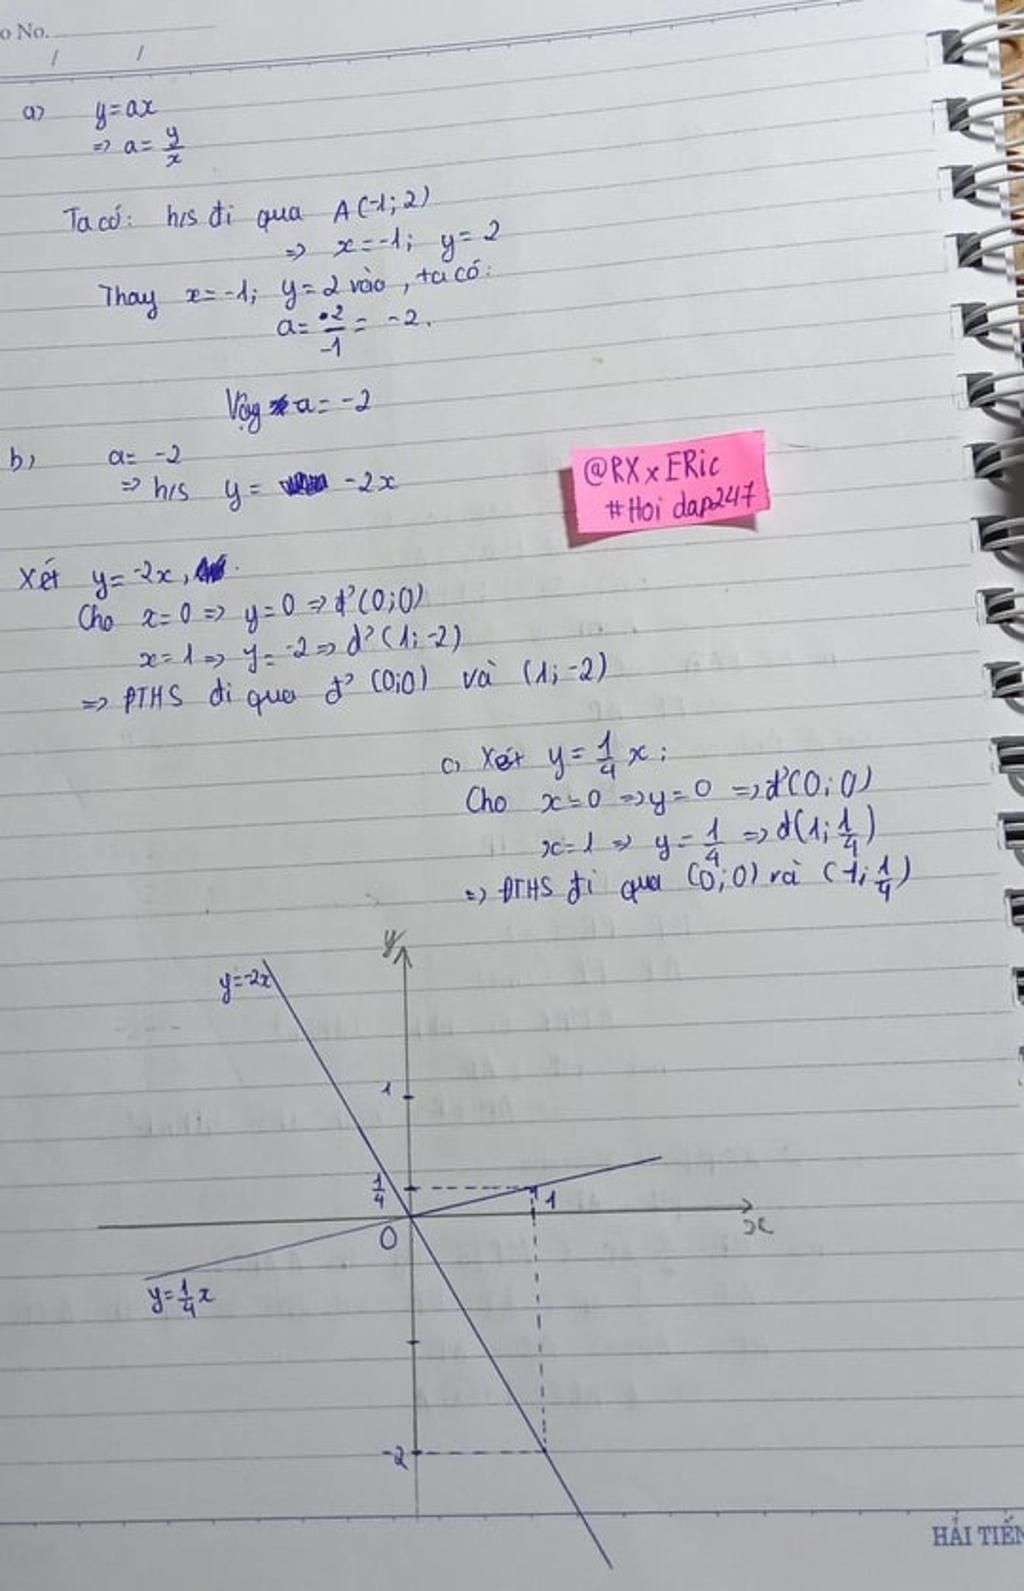 o No.
/ /
a) y=ax
=> a= y/x
Ta có: h/s đi qua A(-1; 2)
=> x=-1; y=2
Thay x=-1; y=2 vào, ta có:
a= 2/-1 = -2.
Vậy a= -2
b) a= -2
=> h/s y= -2x
@RX x ERic
#Hoi dap247
Xét y=-2x,
Cho x=0 => y=0 => đ'(0;0)
x=1 => y=-2 => đ'(1;-2)
=> ĐTHS đi qua đ' (0;0) và (1;-2)
c) Xét y= 1/4 x;
Cho x=0 => y=0 => đ'(0;0)
x=1 => y= 1/4 => đ(1; 1/4)
=> ĐTHS đi qua (0;0) và (1; 1/4)
y
y=-2x
1
1/4
1
O
x
y= 1/4 x
-2
HẢI TIẾN